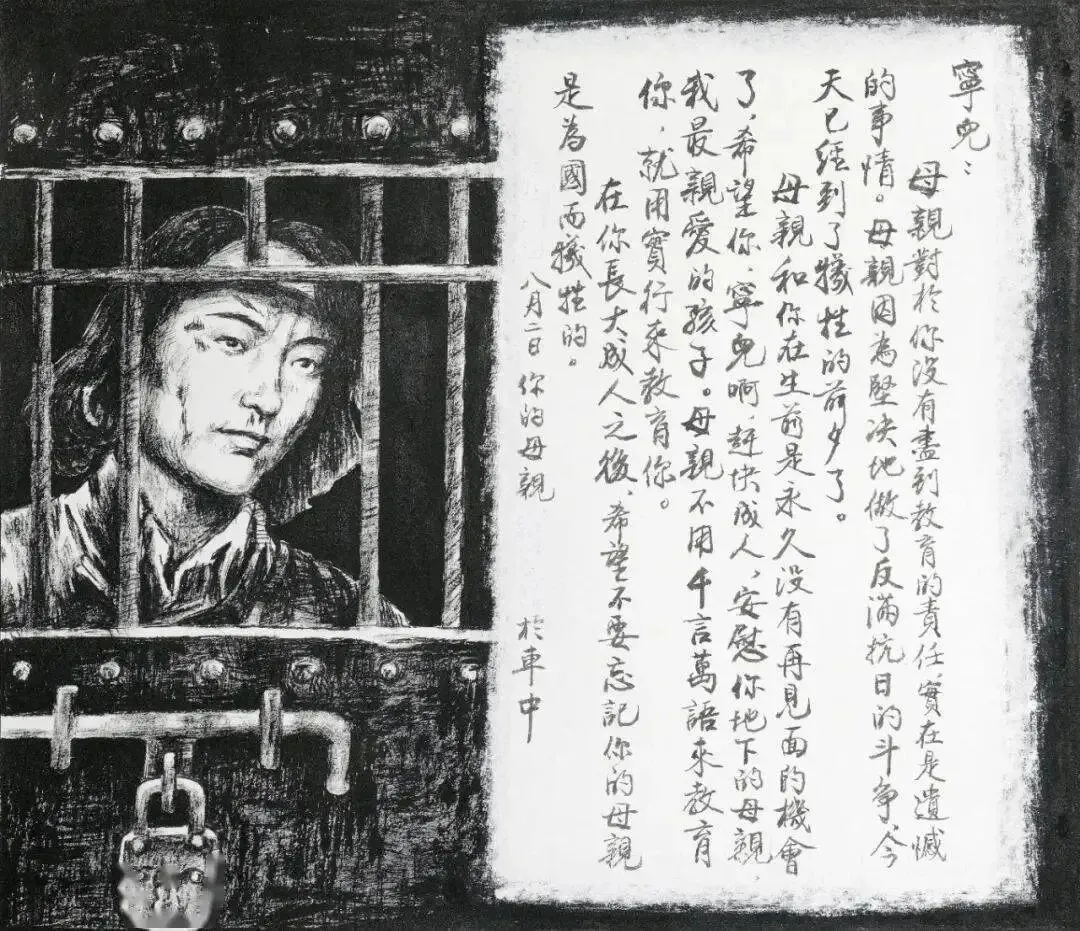 寧兒：
母親對於你沒有盡到教育的責任，實在是遺憾
的事情。母親因為堅决地做了反滿抗日的斗争，今
天已經到了犧牲的前夕了。
母親和你在生前是永久没有再見面的機會
了。希望你，寧兒啊，赶快成人，安慰你地下的母親，
我最親愛的孩子。母親不用千言萬語來教育
你，就用實行來教育你。
在你長大成人之後，希望不要忘記你的母親
是為國而犧牲的。
八月二日 你的母親 於車中